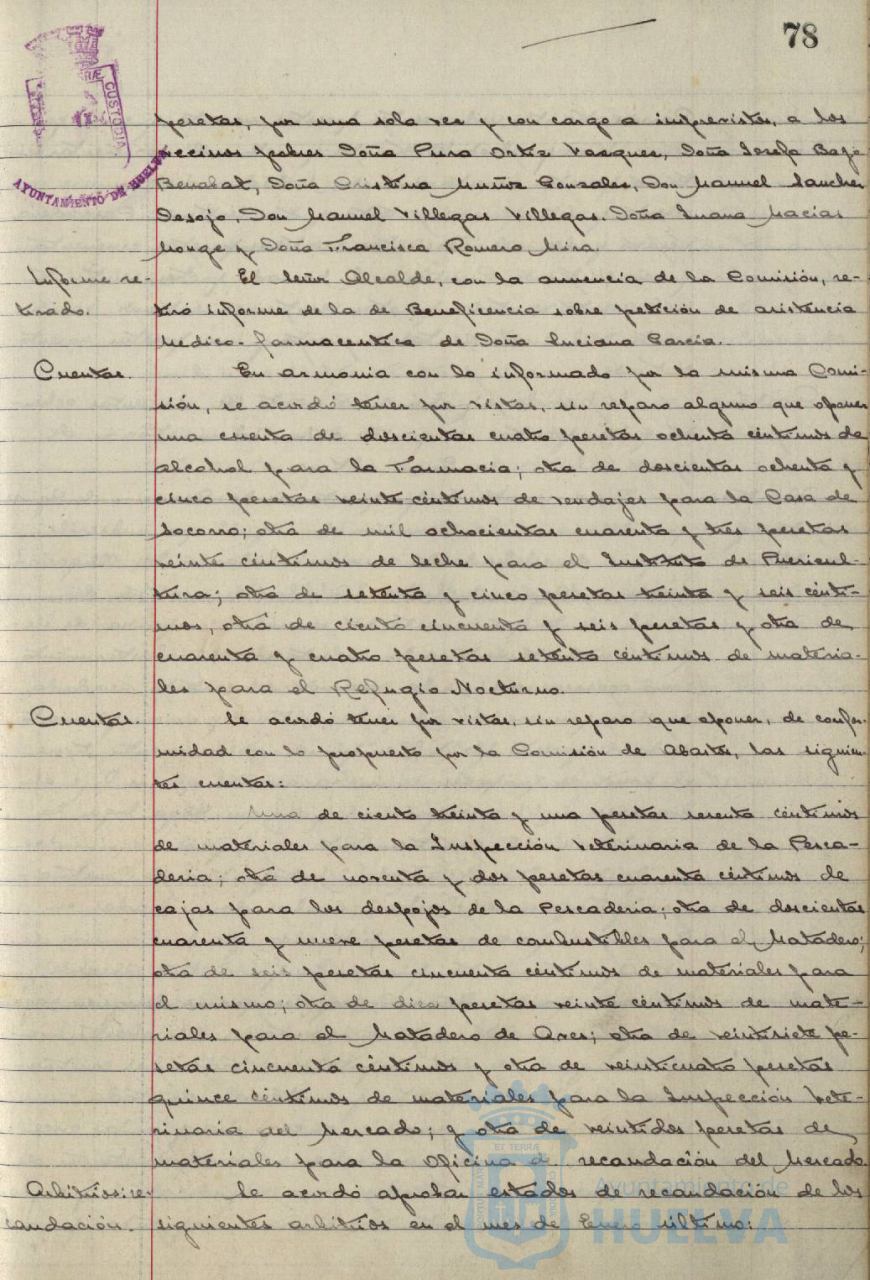 78
CUSTODIA
AYUNTAMIENTO DE HUELVA
pesetas, por una sola vez y con cargo a imprevistos, a los
vecinos pobres Doña Pura Ortiz Vazquez, Doña Josefa Bayo
Benabat, Doña Cristina Muñoz Gonzalez, Don Manuel Sanchez
Desojo, Don Manuel Villegas Villegas, Doña Juana Macías
Monge y Doña Francisca Romero Mira.
Informe re-
tirado.
El Señor Alcalde, con la anuencia de la Comisión, re-
tiró informe de la de Beneficencia sobre petición de asistencia
Medico-farmaceutica de Doña Luciana García.
Cuentas.
En armonia con lo informado por la misma Comi-
sión, se acordó tener por vistas, sin reparo alguno que oponer
una cuenta de doscientas cuatro pesetas ochenta céntimos de
alcohol para la Farmacia; otra de doscientas ochenta y
cinco pesetas veinte céntimos de vendajes para la Casa de
Socorro; otra de mil ochocientas cuarenta y tres pesetas
veinte céntimos de leche para el Instituto de Puericul-
tura; otra de setenta y cinco pesetas treinta y seis cénti-
mos, otra de ciento cincuenta y seis pesetas y otra de
cuarenta y cuatro pesetas setenta céntimos de materia-
les para el Refugio Nocturno.
Cuentas.
Se acordó tener por vistas, sin reparo que oponer, de confor-
midad con lo propuesto por la Comisión de Abastos, las siguien-
tes cuentas:
Una de ciento treinta y una pesetas sesenta céntimos
de materiales para la Inspección Veterinaria de la Pesca-
deria; otra de noventa y dos pesetas cuarenta céntimos de
cajas para los despojos de la Pescaderia; otra de doscientas
cuarenta y nueve pesetas de combustibles para el Matadero;
otra de seis pesetas cincuenta céntimos de materiales para
el mismo; otra de diez pesetas veinte céntimos de mate-
riales para el Matadero de Aves; otra de veintisiete pe-
setas cincuenta céntimos y otra de veinticuatro pesetas
quince céntimos de materiales para la Inspección Vete-
rinaria del Mercado; y otra de veintidos pesetas de
materiales para la Oficina de recaudación del Mercado.
Arbitrios: re-
caudación.
Se acordó aprobar estados de recaudación de los
siguientes arbitrios en el mes de Enero último:
Ayuntamiento de
HUELVA